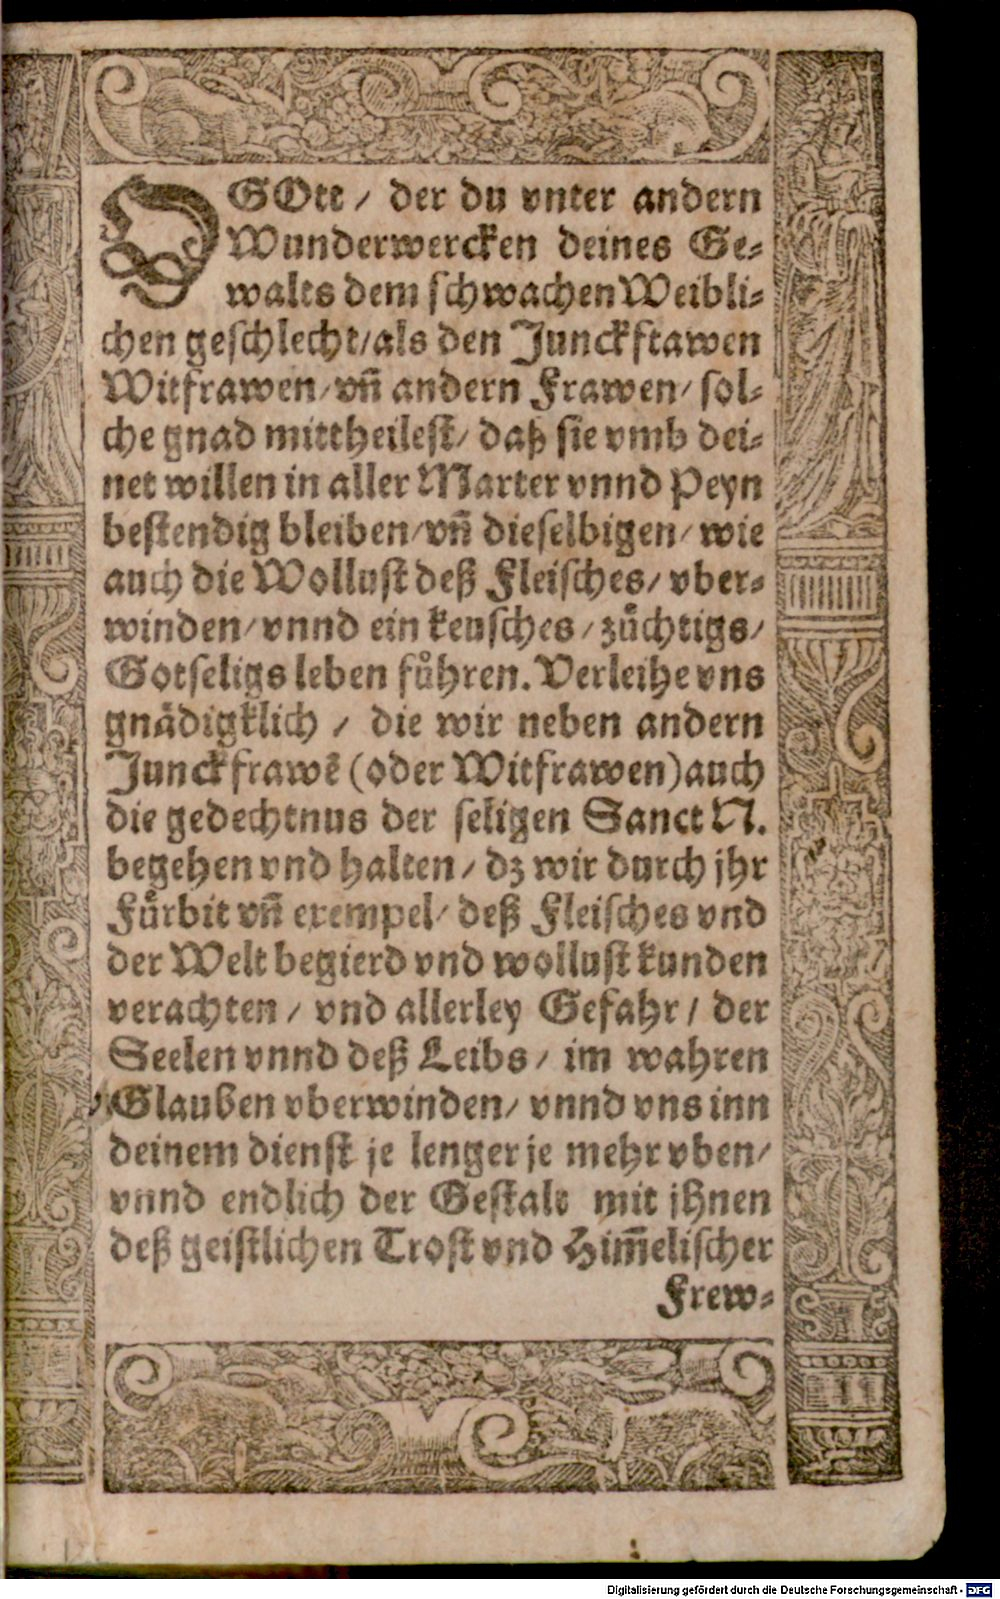 O GOtt / der du vnter andern
Wunderwercken deines Ge⸗
walts dem schwachen Weibli⸗
chen geschlecht/als den Junckftawen
Witfrawen/vn̄ andern Frawen/ sol⸗
che gnad mittheilest/ daß sie vmb dei⸗
net willen in aller Marter vnnd Peyn
bestendig bleiben/vn̄ dieselbigen/ wie
auch die Wollust deß Fleisches/ vber⸗
winden/vnnd ein keusches/zuͤchtigs/
Gotseligs leben fuͤhren. Verleihe vns
gnaͤdigklich / die wir neben andern
Junckfrawē (oder Witfrawen) auch
die gedechtnus der seligen Sanct N.
begehen vnd halten / dz wir durch jhr
Fuͤrbit vn̄ exempel/ deß Fleisches vnd
der Welt begierd vnd wollust kunden
verachten / vnd allerley Gefahr / der
Seelen vnnd deß Leibs / im wahren
Glauben vberwinden/ vnnd vns inn
deinem dienst je lenger je mehr vben/
vnnd endlich der Gestalt mit jhnen
deß geistlichen Trost vnd Him̄elischer
Frew⸗
Digitalisierung gefördert durch die Deutsche Forschungsgemeinschaft - DFG